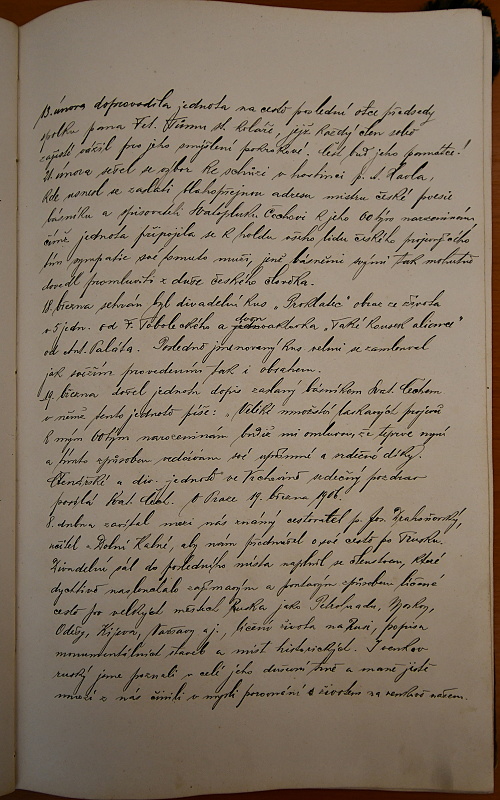 13. února doprovodila jednota na cestě poslední otce předsedy
spolku pana Fet. Tůmu st. koláře, jejž každý člen sobě
zajisté vážil pro jeho smýšlení pokrokové. Čest buď jeho památce!
21. února sešel se výbor ke schůzi v hostinci p. A. Kavla,
kde usnesl se zaslati blahopřejnou adresu mistru české poesie
básníku a spisovateli Svatopluku Čechovi k jeho 60tým narozeninám
čímž jednota připojila se k holdu všeho lidu českého projevujícího
tím sympatie své tomuto muži, jenž básněmi svými tak mohutně
dovedl promluviti z duše českého člověka.
18. března sehrán byl divadelní kus „Proklatec" obraz ze života
v 5 jedn. od F. Soboleckého a dvouaktovka „Také kousek aliance"
od Ant. Paláta. Posledně jmenovaný kus velmi se zamlouval
jak svižším provedením tak i obsahem.
19. března došel jednotu dopis zaslaný básníkem Svat. Čechem
v němž tento jednotě píše: „Veliké množství laskavých projevů
k mým 60tým narozeninám budiž mi omluvou, že teprve nyní
a tímto způsobem vzdávám své upřímné a srdečné díky.
Čtenářské a div. jednotě ve Vrchovině srdečný pozdrav
posílá Svat. Čech. V Praze 19. března 1906.
8. dubna zavítal mezi nás známý cestovatel p. Jos. Drahoňovský,
učitel z Dolní Kalné, aby nám přednášel o své cestě po Rusku.
Divadelní sál do posledního místa naplnil se členstvem, které
dychtivě naslouchalo zajímavým a poutavým způsobem líčené
cestě po velkých městech Ruska jako Petrohradu, Moskvy,
Oděsy, Kijeva, Varšavy aj., líčení života na Rusi, popisu
monumentálních staveb a míst historických. I venkov
ruský jsme poznali v celé jeho duševní tmě a mnozí ještě
mnozí z nás činili v mysli porovnání s životem na venkově našem.